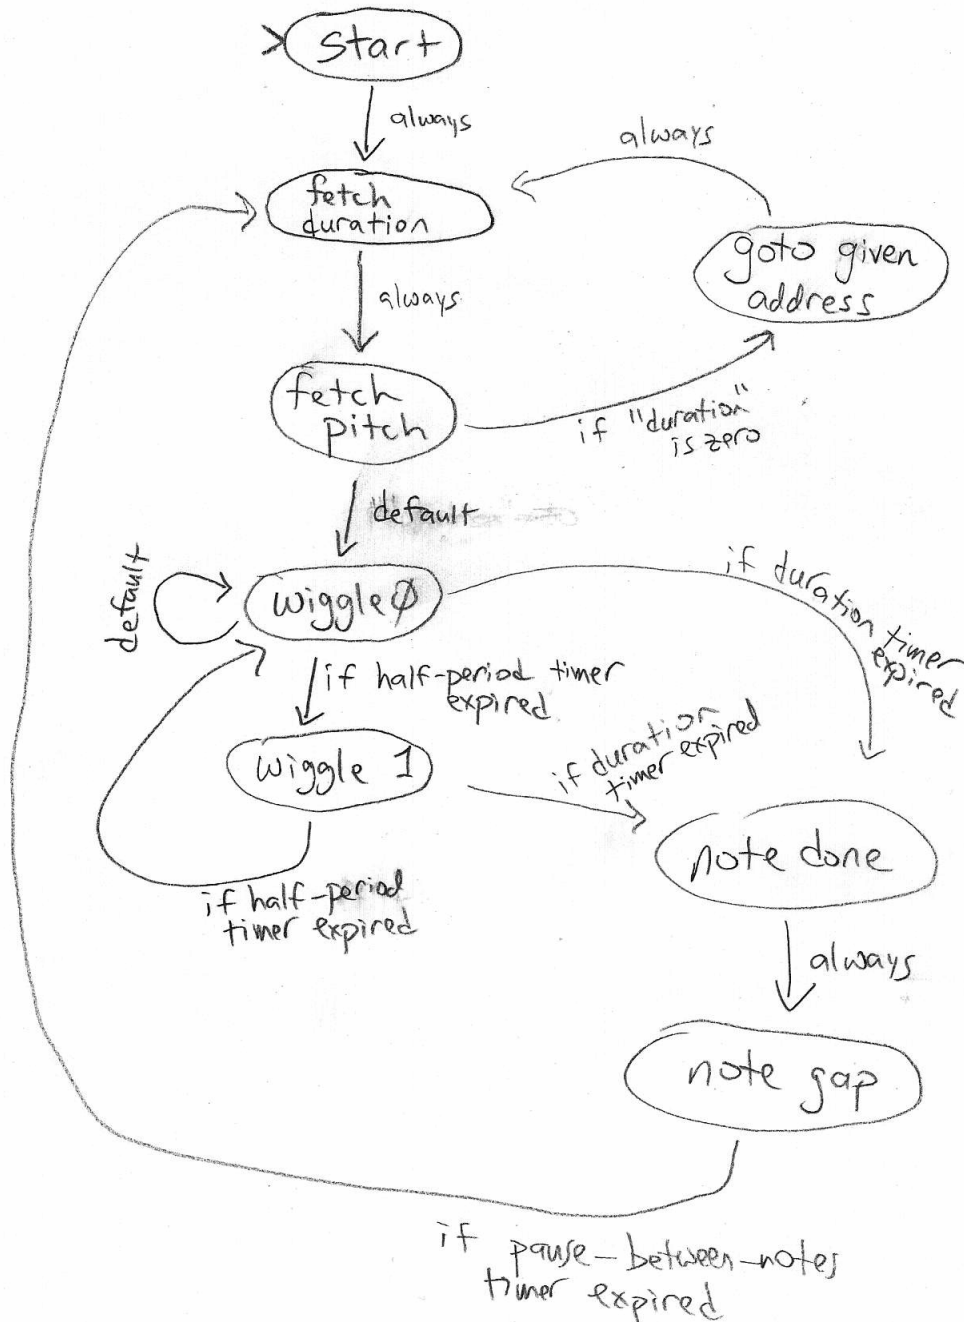 start
always
always
fetch
duration
goto given
address
always
fetch
pitch
if "duration"
is zero
default
default
wiggle 0
if duration timer
expired
if half-period timer
expired
wiggle 1
if duration
timer expired
note done
if half-period
timer expired
always
note gap
if pause-between-notes
timer expired